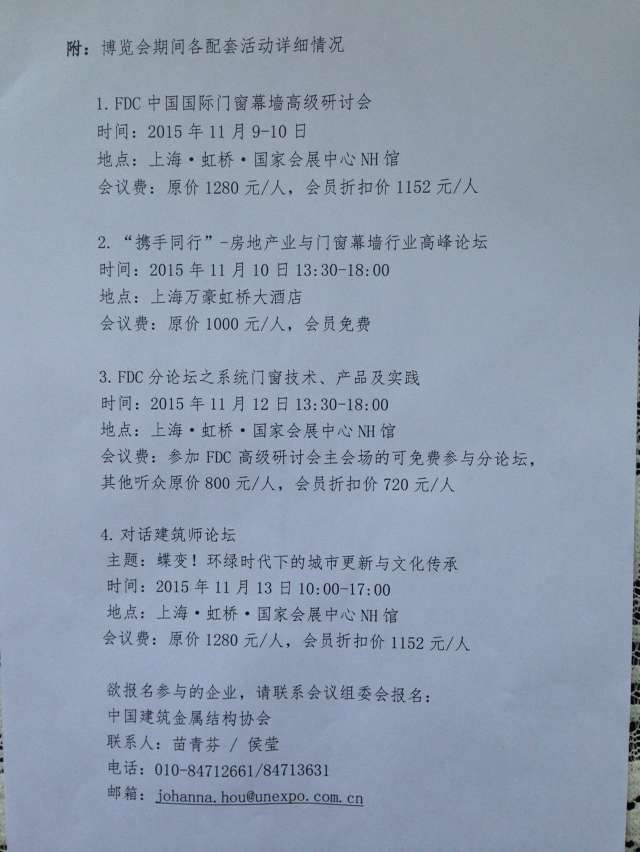 附：博览会期间各配套活动详细情况
1. FDC 中国国际门窗幕墙高级研讨会
时间：2015 年 11 月 9-10 日
地点：上海·虹桥·国家会展中心 NH 馆
会议费：原价 1280 元/人，会员折扣价 1152 元/人
2. “携手同行”-房地产业与门窗幕墙行业高峰论坛
时间：2015 年 11 月 10 日 13:30-18:00
地点：上海万豪虹桥大酒店
会议费：原价 1000 元/人，会员免费
3. FDC 分论坛之系统门窗技术、产品及实践
时间：2015 年 11 月 12 日 13:30-18:00
地点：上海·虹桥·国家会展中心 NH 馆
会议费：参加 FDC 高级研讨会主会场的可免费参与分论坛，
其他听众原价 800 元/人，会员折扣价 720 元/人
4. 对话建筑师论坛
主题：蝶变！环绿时代下的城市更新与文化传承
时间：2015 年 11 月 13 日 10:00-17:00
地点：上海·虹桥·国家会展中心 NH 馆
会议费：原价 1280 元/人，会员折扣价 1152 元/人
欲报名参与的企业，请联系会议组委会报名：
中国建筑金属结构协会
联系人：苗青芬 / 侯莹
电话：010-84712661/84713631
邮箱：johanna.hou@unexpo.com.cn